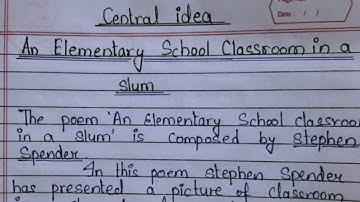 Central idea
Date: / /
An Elementary School Classroom in a
slum
The poem 'An Elementary School classroom
in a slum' is composed by stephen
Spender.
In this poem stephen Spender
has presented a picture of classroom